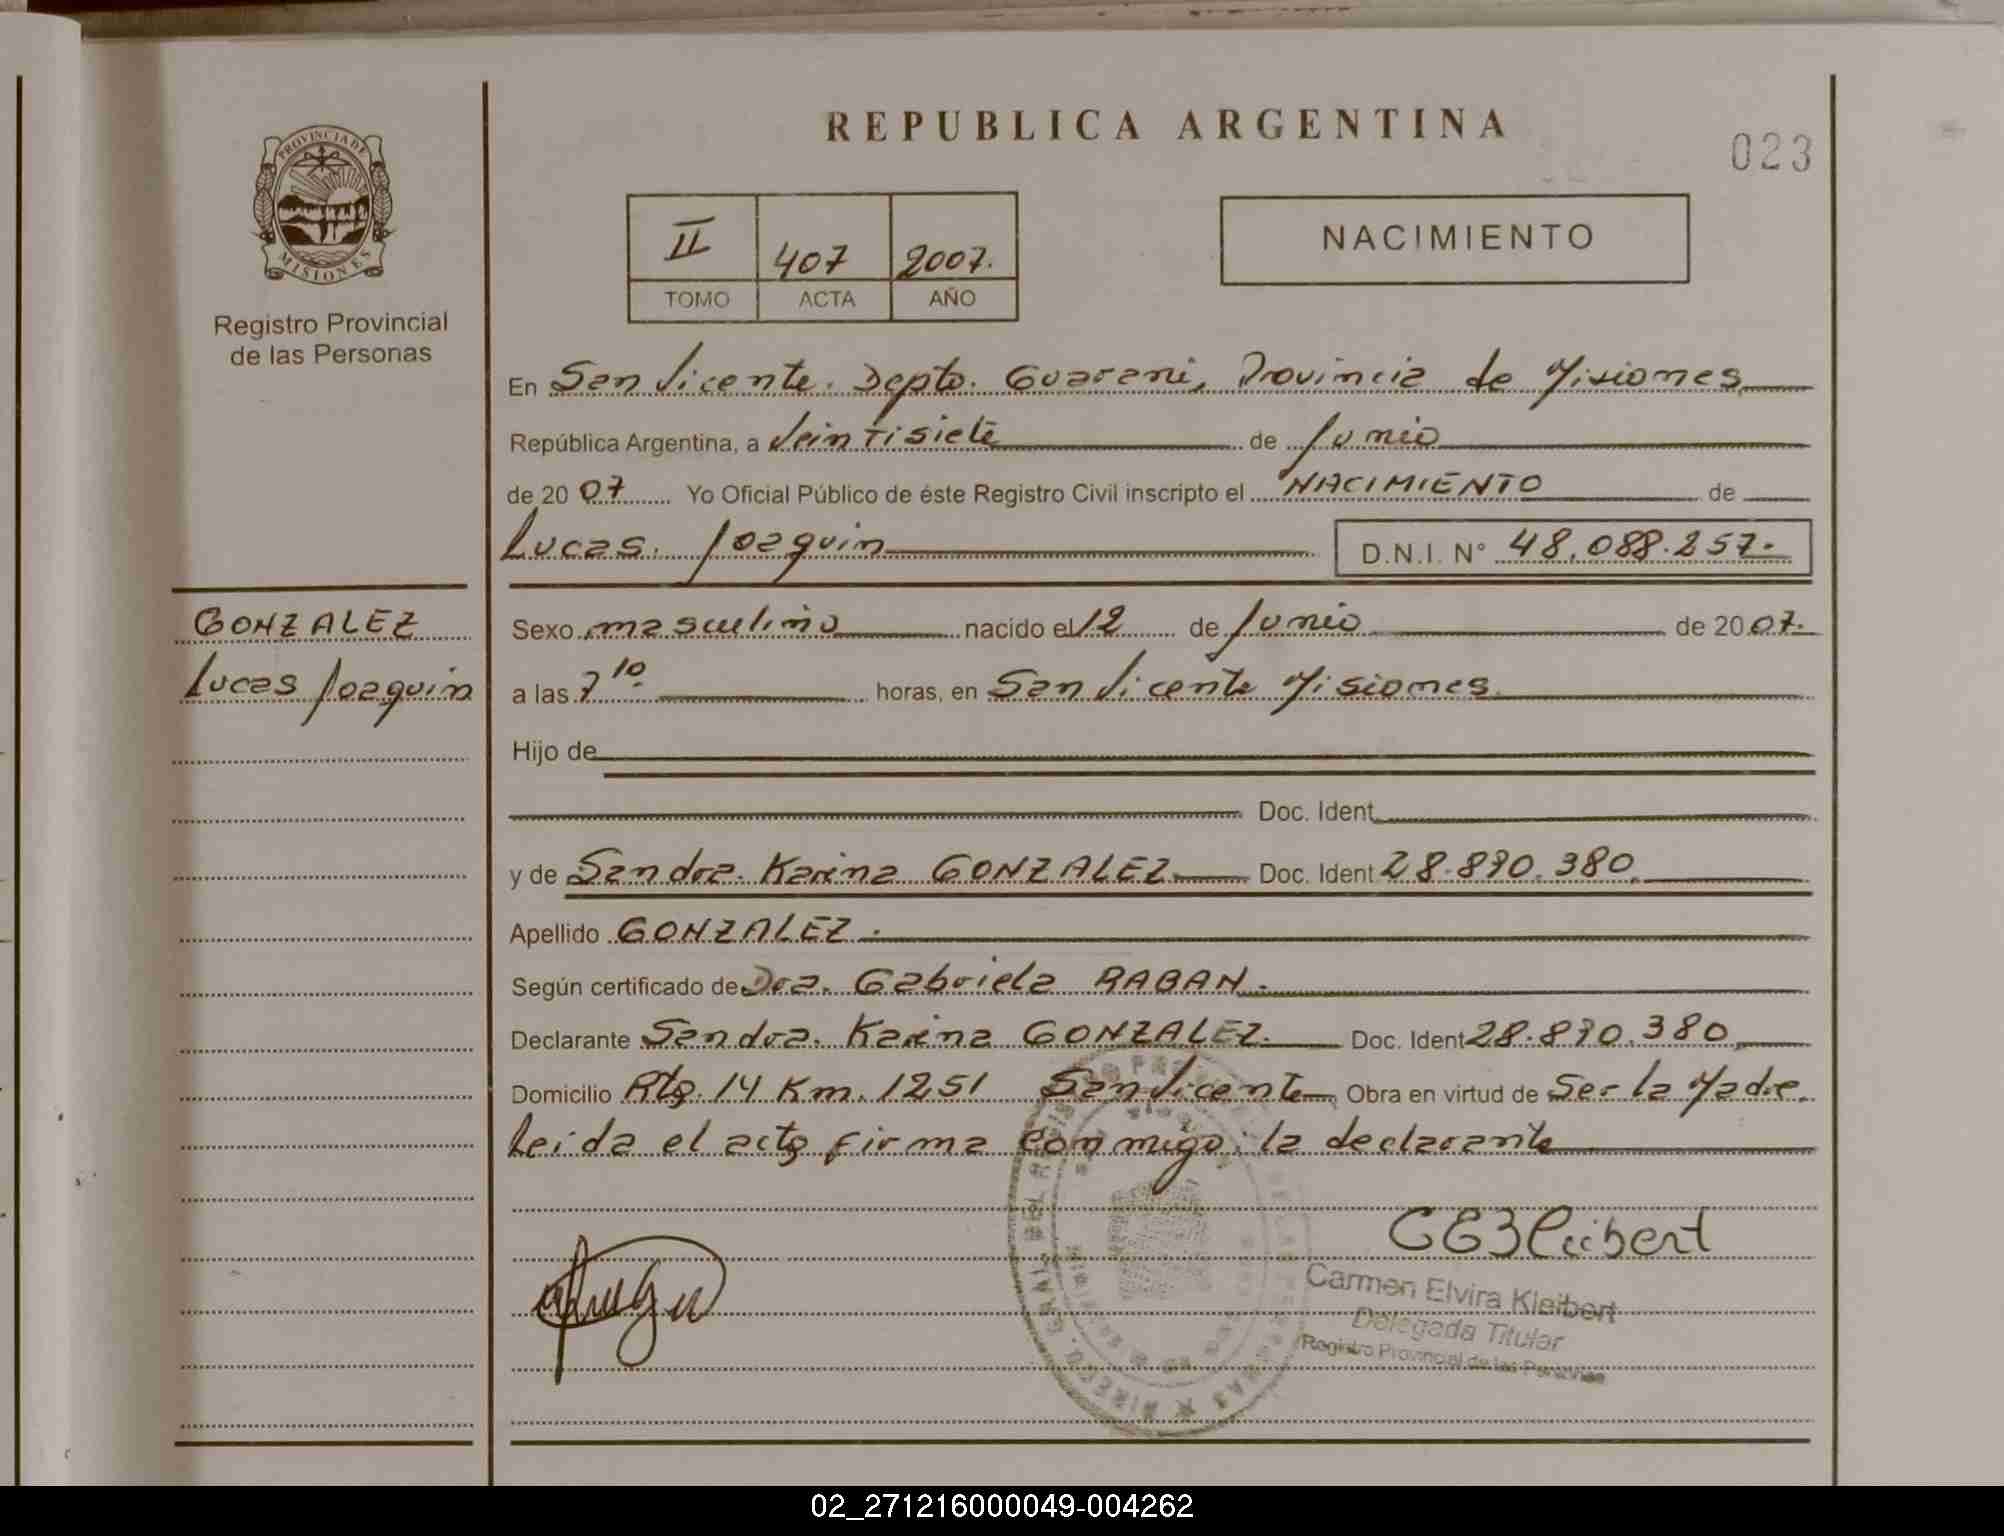 PROVINCIA DE
MISIONES
Registro Provincial
de las Personas
GONZALEZ
Lucas Joaquin
REPUBLICA ARGENTINA
023
II 407 2007.
TOMO ACTA AÑO
NACIMIENTO
En San Vicente. Depto. Guarani, Provincia de Misiones
República Argentina, a Veintisiete de Junio
de 20 07 Yo Oficial Público de éste Registro Civil inscripto el NACIMIENTO de
Lucas Joaquin D.N.I. N° 48.088.257.
Sexo masculino nacido el 12 de Junio de 20 07.
a las 7 10. horas, en San Vicente Misiones
Hijo de
Doc. Ident
y de Sandra Karina GONZALEZ Doc. Ident 28.890.380
Apellido GONZALEZ.
Según certificado de Dra. Gabriela RABAN.
Declarante Sandra Karina GONZALEZ. Doc. Ident 28.890.380
Domicilio Rta. 14 Km. 1251 San Vicente Obra en virtud de Ser la Madre.
Leida el acta firma conmigo: la declarante
CEKleibert
Carmen Elvira Kleibert
Delegada Titular
Registro Provincial de las Personas
02_271216000049-004262